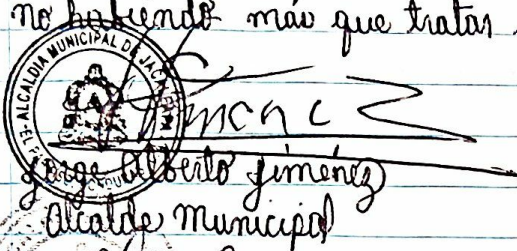 no habiendo más que tratar.
ALCALDIA MUNICIPAL DE
Jorge Alberto Jiménez
Alcalde Municipal